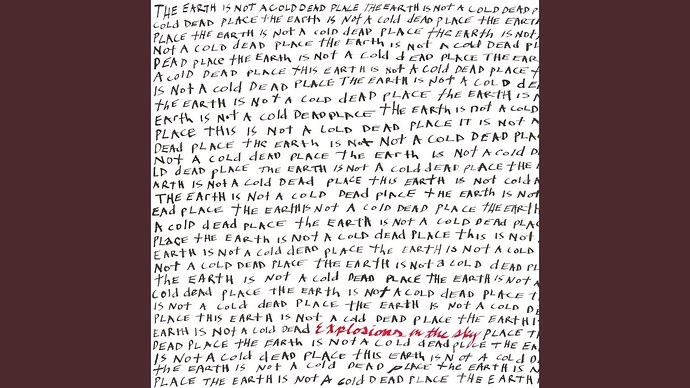 THE EARTH IS NOT A COLD DEAD PLACE THE EARTH IS NOT A COLD DEAD P
COLD DEAD PLACE THE EARTH IS NOT A COLD DEAD PLACE THE EARTH
PLACE THE EARTH IS NOT A COLD DEAD PLACE THE EARTH IS NOT
NOT A COLD DEAD PLACE THE EARTH IS NOT A COLD DEAD PL
DEAD PLACE THE EARTH IS NOT A COLD DEAD PLACE THE EAR
A COLD DEAD PLACE THIS EARTH IS NOT A COLD DEAD PLACE
IS NOT A COLD DEAD PLACE THE EARTH IS NOT A COLD DE
THE EARTH IS NOT A COLD DEAD PLACE THE EARTH IS NOT A
EARTH IS NOT A COLD DEAD PLACE THE EARTH IS NOT A COLD
PLACE THIS IS NOT A COLD DEAD PLACE IT IS NOT A
DEAD PLACE THE EARTH IS NOT A COLD DEAD PLA
NOT A COLD DEAD PLACE THE EARTH IS NOT A COLD D
LD DEAD PLACE THE EARTH IS NOT A COLD DEAD PLACE THE
ARTH IS NOT A COLD DEAD PLACE THIS EARTH IS NOT COLD A
THE EARTH IS NOT A COLD DEAD PLACE THE EARTH IS NOT
EAD PLACE THE EARTH IS NOT A COLD DEAD PLACE THE EARTH
A COLD DEAD PLACE THE EARTH IS NOT A COLD DEAD PLAC
PLACE THE EARTH IS NOT A COLD DEAD PLACE THIS IS NOT
EARTH IS NOT A COLD DEAD PLACE THE EARTH IS NOT A COLD
NOT A COLD DEAD PLACE THE EARTH IS NOT A COLD DEAD PL
THE EARTH IS NOT A COLD DEAD PLACE THE EARTH IS NOT
COLD DEAD PLACE THE EARTH IS NOT A COLD DEAD PLACE THE
IS NOT A COLD DEAD PLACE THE EARTH IS NOT A COLD DE
PLACE THIS EARTH IS NOT A COLD DEAD PLACE THE EARTH I
EARTH IS NOT A COLD DEAD Explosions in the sky PLACE T
DEAD PLACE THE EARTH IS NOT A COLD DEAD PLACE THE EA
IS NOT A COLD DEAD PLACE THIS EARTH IS NOT A COLD D
THE EARTH IS NOT A COLD DEAD PLACE THE EARTH IS NOT
PLACE THE EARTH IS NOT A COLD DEAD PLACE THE EARTH